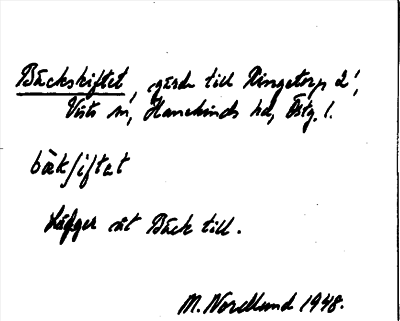 Bäckskiftet, gärde till Ringetorp 2',
Vists sn, Hanekinds hd, Östg. l.
bäkʃiftet
Ligger åt Bäck till.
M. Nordlund 1948.